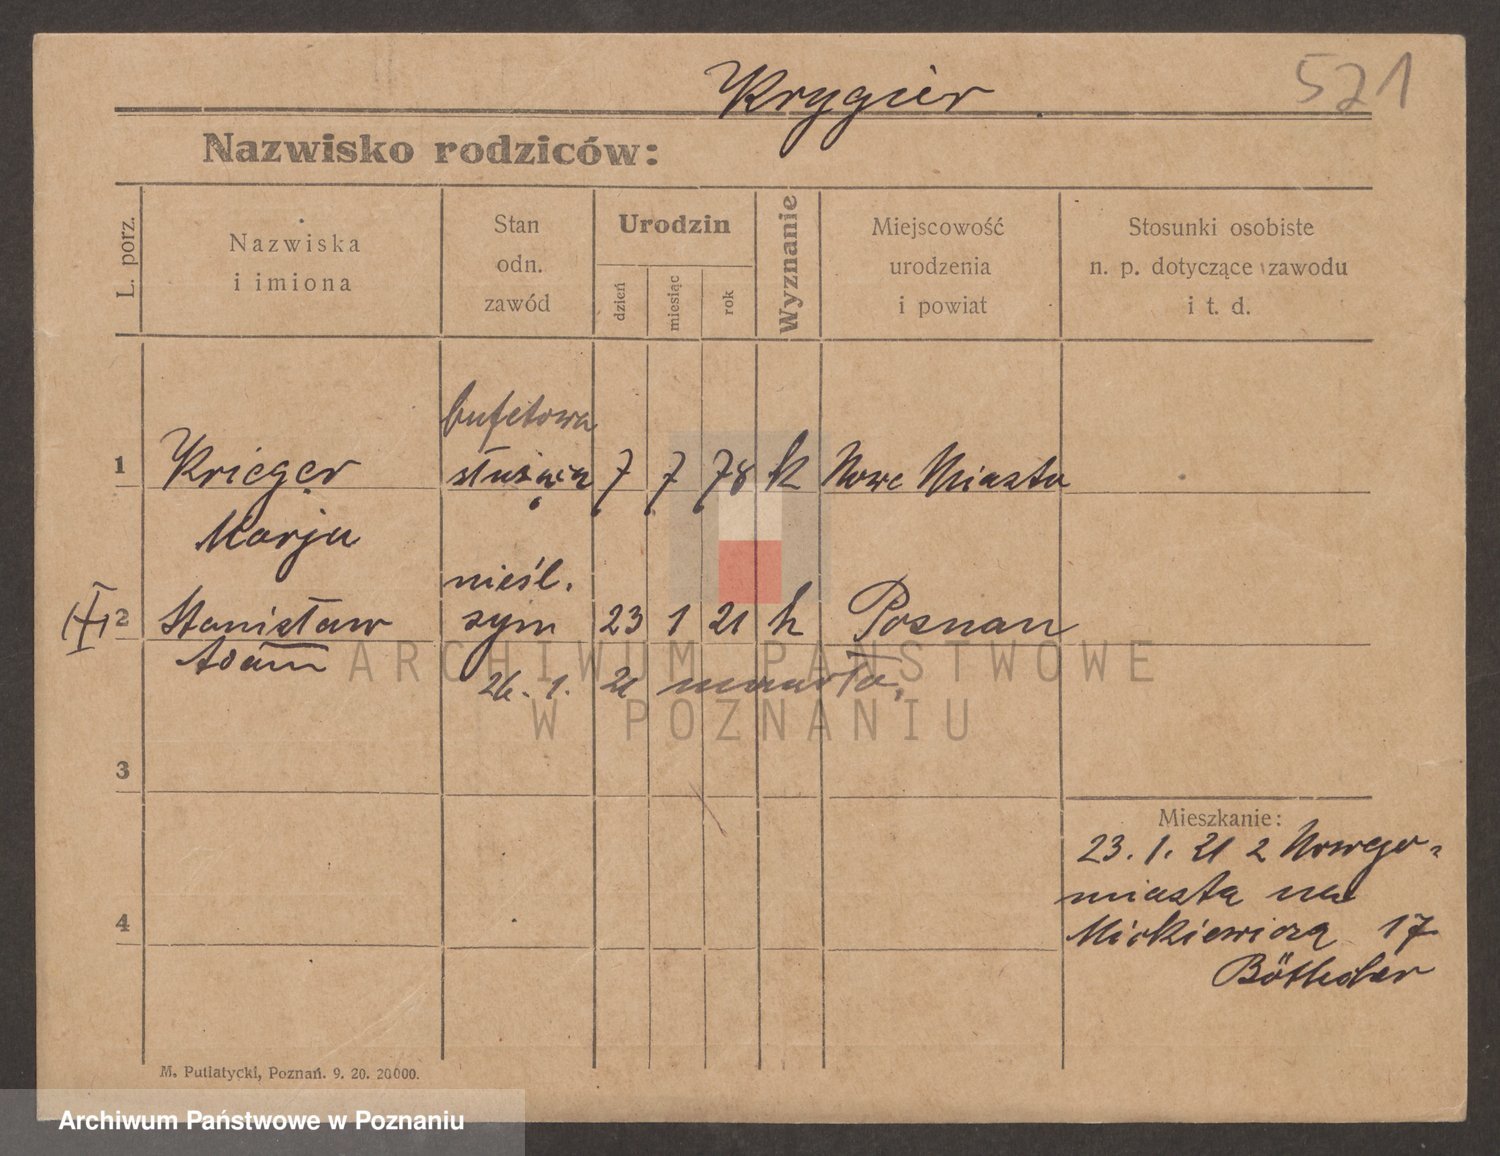 Krygier
521
Nazwisko rodziców:
L. porz.
Nazwiska
i imiona
Stan
odn.
zawód
Urodzin
dzień
miesiąc
rok
Wyznanie
Miejscowość
urodzenia
i powiat
Stosunki osobiste
n. p. dotyczące zawodu
i t. d.
bufetowa
1 Krieger służąca 7 7 78 k Nowe Miasto
Marja
nieśl.
2 Stanisław syn 23 1 21 k Poznan
Adam
26. 1. 21
ARCHIWUM PAŃSTWOWE
W POZNANIU
3
Mieszkanie:
23. 1. 21 z Nowego-
miasta na
4
Mickiewicza 17
M. Putiatycki, Poznań. 9. 20. 20000.
Archiwum Państwowe w Poznaniu